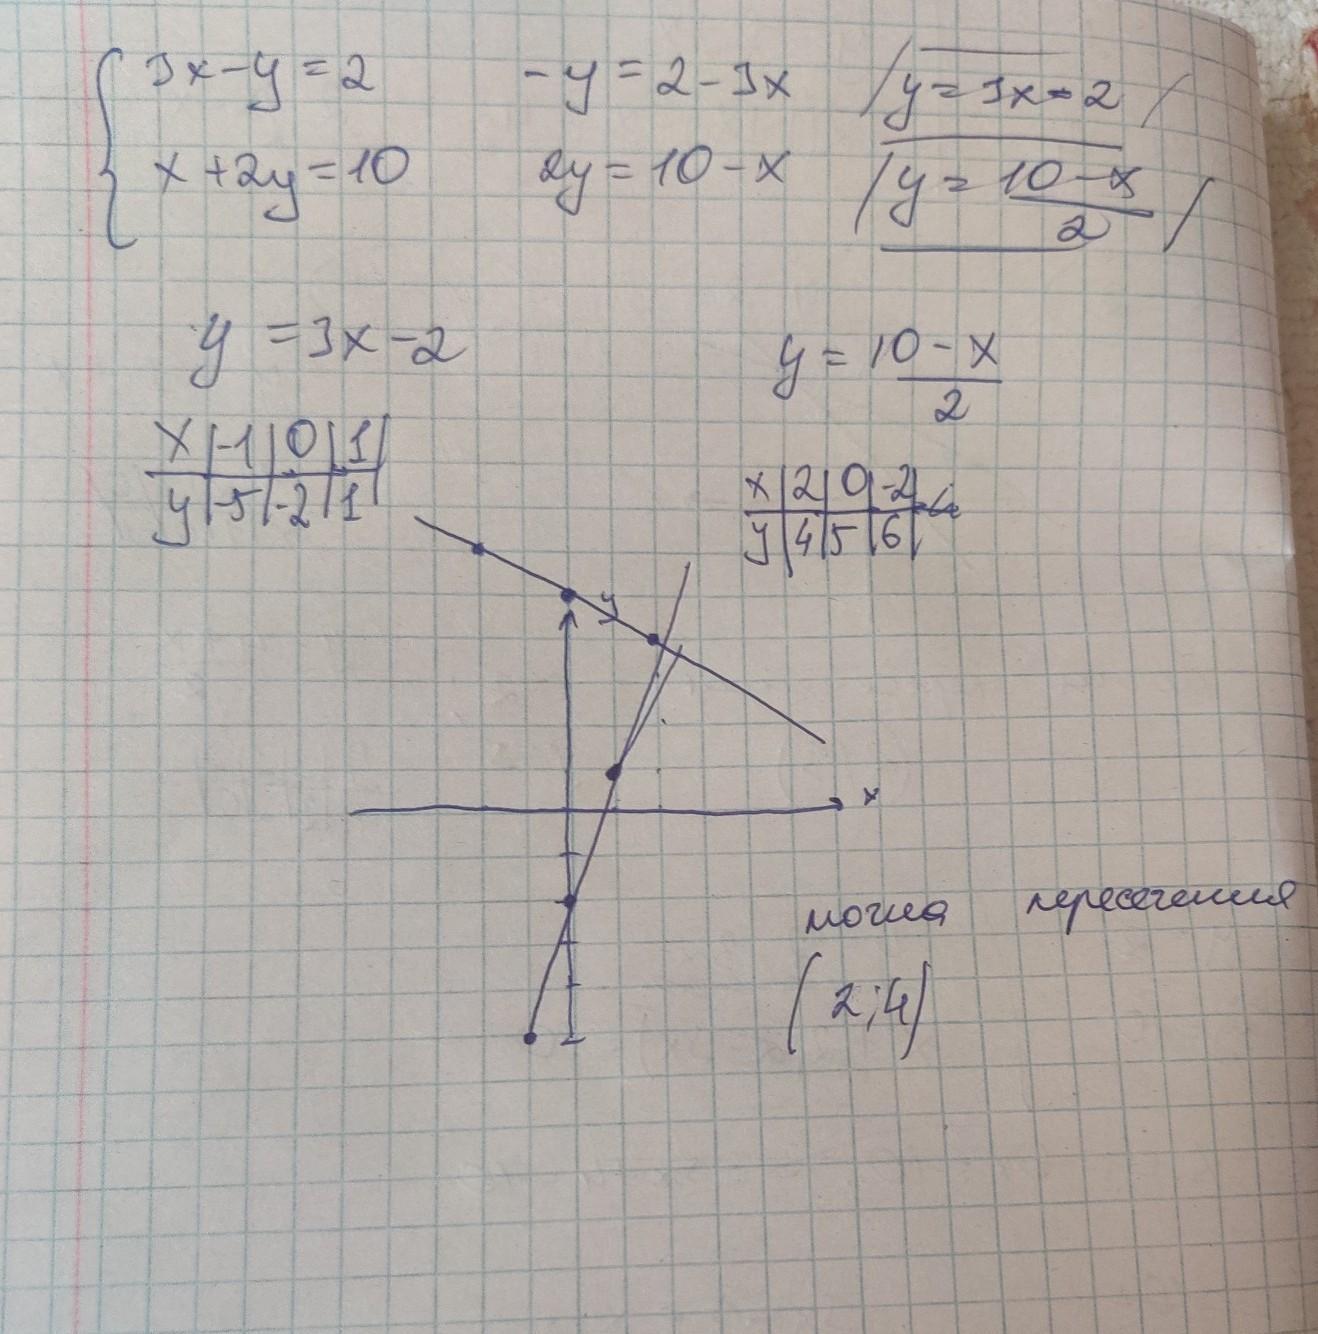 3x-y=2 -y=2-3x /y=3x-2/
x+2y=10 2y=10-x /y=10-x/2/
y=3x-2 y=10-x/2
x|-1|0|1|
y|-5|-2|1
x|2|0|-2|
y|4|5|6|
y
x
точка пересечения
(2;4)